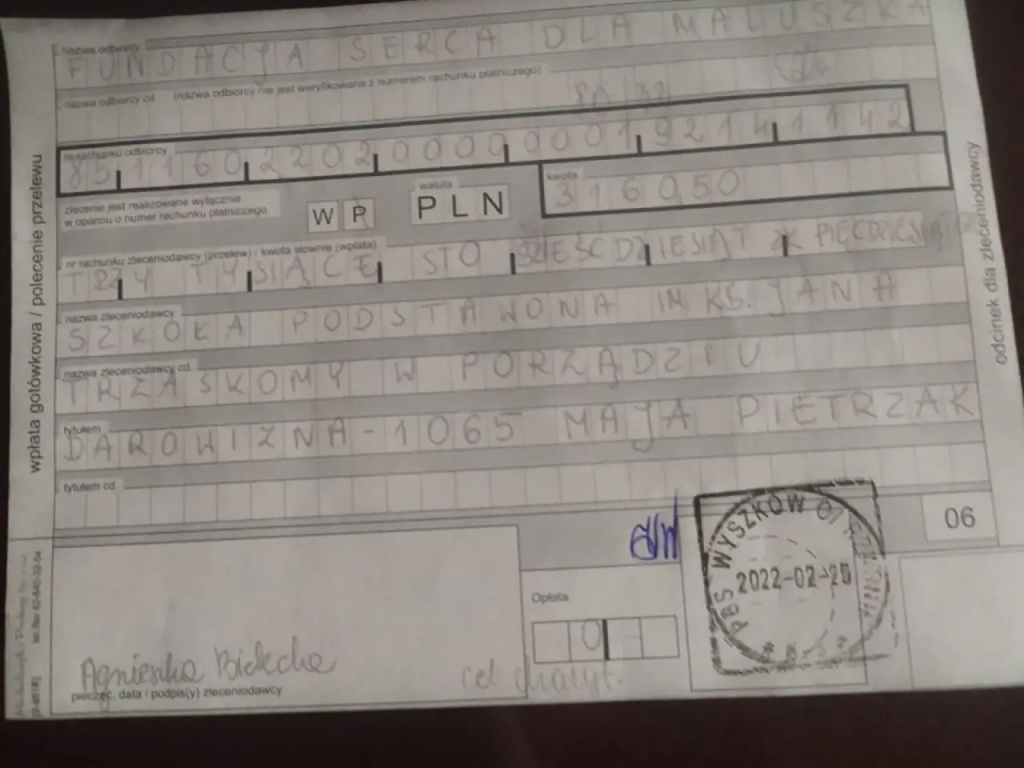 nazwa odbiorcy
FUNDACJA SERCA DLA MALUSZKA
nazwa odbiorcy cd (nazwa odbiorcy nie jest weryfikowana z numerem rachunku płatniczego)
nr rachunku odbiorcy
85 1160 2202 0000 0001 9214 1142
kwota
3160,50
zlecenie jest realizowane wyłącznie
w oparciu o numer rachunku płatniczego
W P
waluta
PLN
nr rachunku zleceniodawcy (przelew) / kwota słownie (wpłata)
TRZY TYSIĄCE STO SZEŚĆDZIESIĄT
nazwa zleceniodawcy
SZKOŁA PODSTAWOWA IM KS. JANA
nazwa zleceniodawcy cd.
TRZASKOMY W PORZĄDZIU
tytułem
DAROWIZNA-1065 MAJA PIETRZAK
tytułem cd.
wpłata gotówkowa / polecenie przelewu
odcinek dla zleceniodawcy
06
PBS WYSZKÓW
2022-02-25
Opłata
0 -
Agnieszka Bielecka
pieczęć, data i podpis(y) zleceniodawcy
cel charyt.